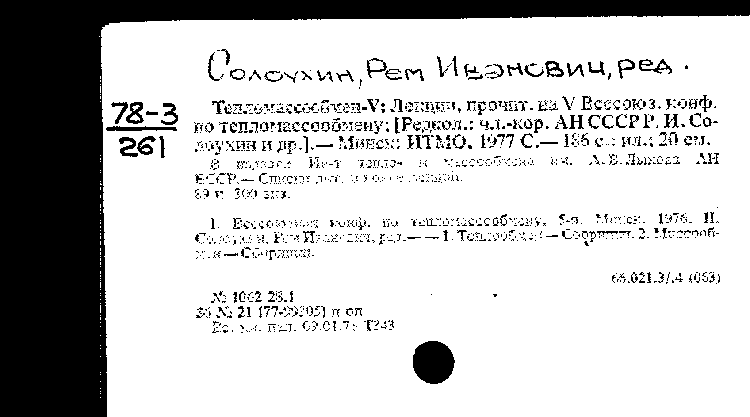 Солоухин, Рем Иванович, ред.
78-3
261
Тепломассообмен-V: Лекции, прочит. на V Всесоюз. конф.
по тепломассообмену: [Редкол.: чл.-кор. АН СССР Р. И. Со-
лоухин и др.].— Минск: ИТМО, 1977 С.— 186 с.: ил.; 20 см.
В надзаг. Ин-т тепло- и массообмена им. А. В. Лыкова АН
БССР.— Списки лит. в конце лекций.
300 экз.
1. Всесоюзная конф. по тепломассообмену. 5-я. Минск. 1976. II.
Солоухин, Рем Иванович, ред.— — 1. Теплообмен — Сборники. 2. Массооб-
мен — Сборники.
№ 1062
№ 21 п оп
09.01.78 Т343